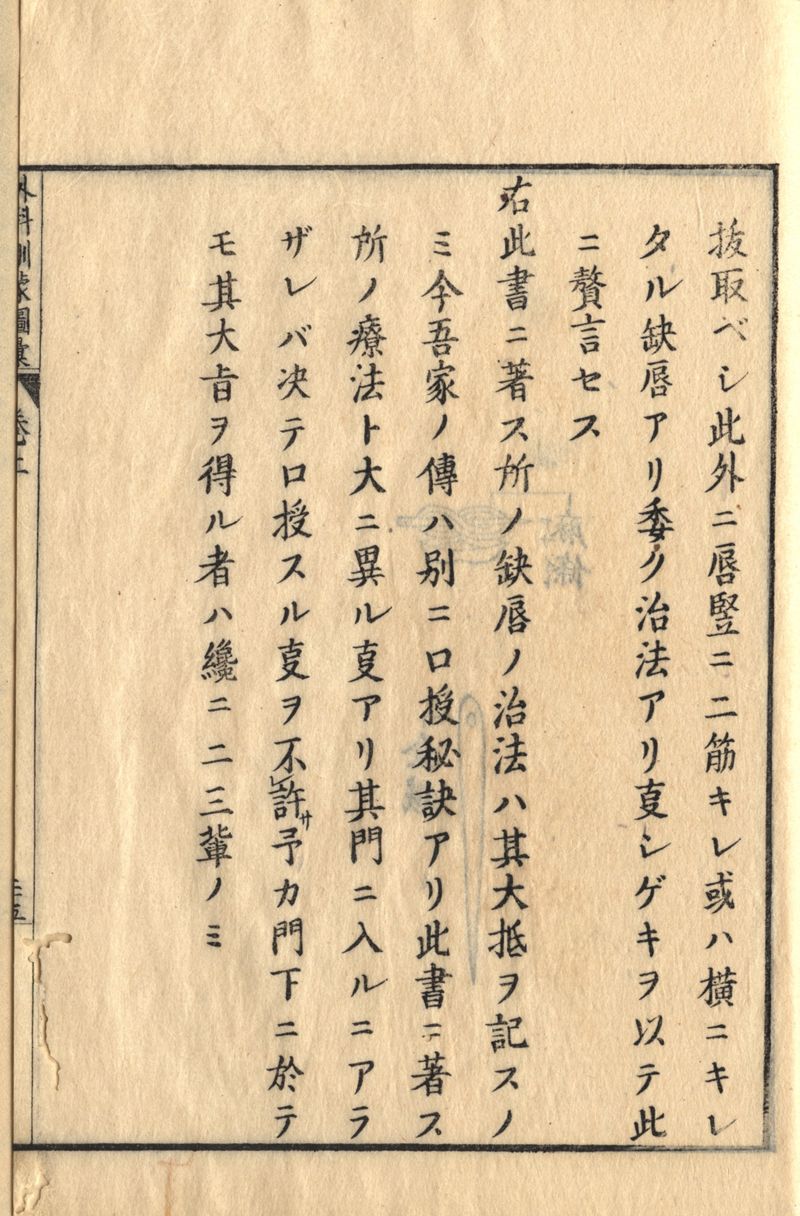 抜取ベシ此外ニ唇竪ニ二筋キレ或ハ横ニキレ
タル缺唇アリ委ク治法アリ叓シゲキヲ以テ此
ニ贅言セス
右此書ニ著ス所ノ缺唇ノ治法ハ其大抵ヲ記スノ
ミ今吾家ノ傳ハ别ニ口授秘訣アリ此書ニ著ス
所ノ療法ト大ニ異ル叓アリ其門ニ入ルニアラ
ザレバ决テ口授スル叓ヲ不レ許サ予カ門下ニ於テ
モ其大旨ヲ得ル者ハ纔ニ二三輩ノミ
外科訓蒙圖彙
卷二